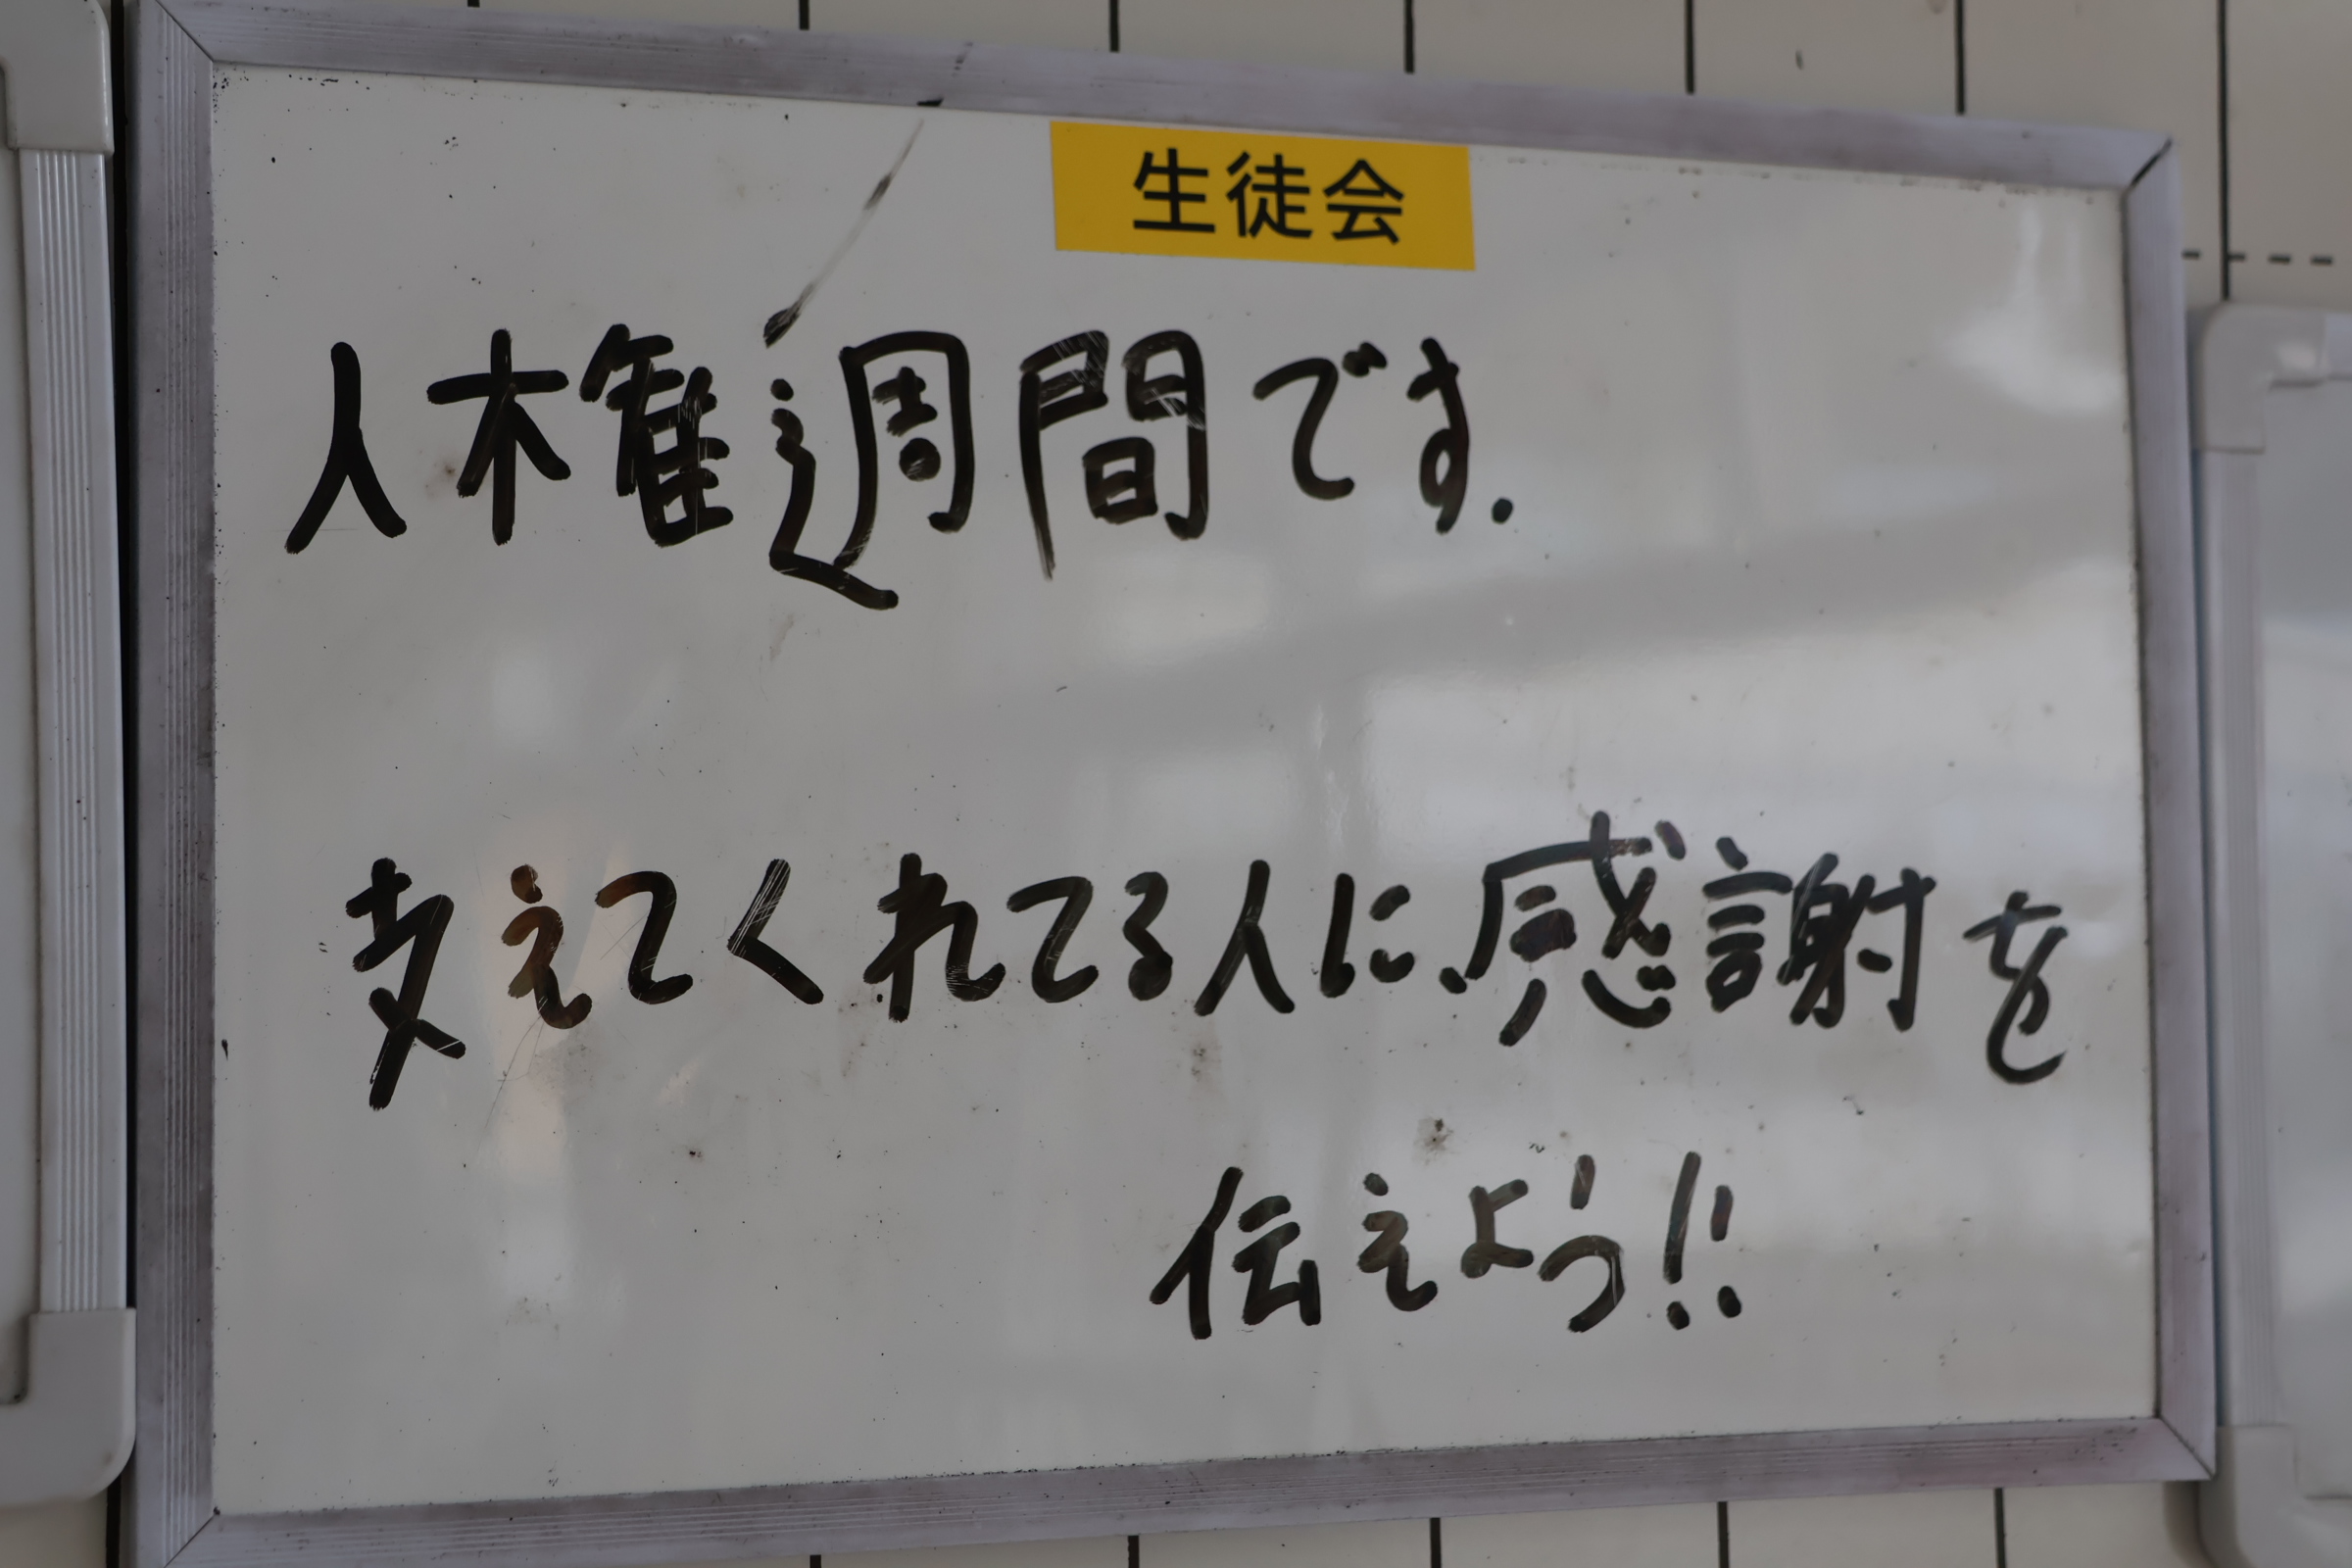 生徒会
人権週間です.
支えてくれてる人に感謝を
伝えよう!!